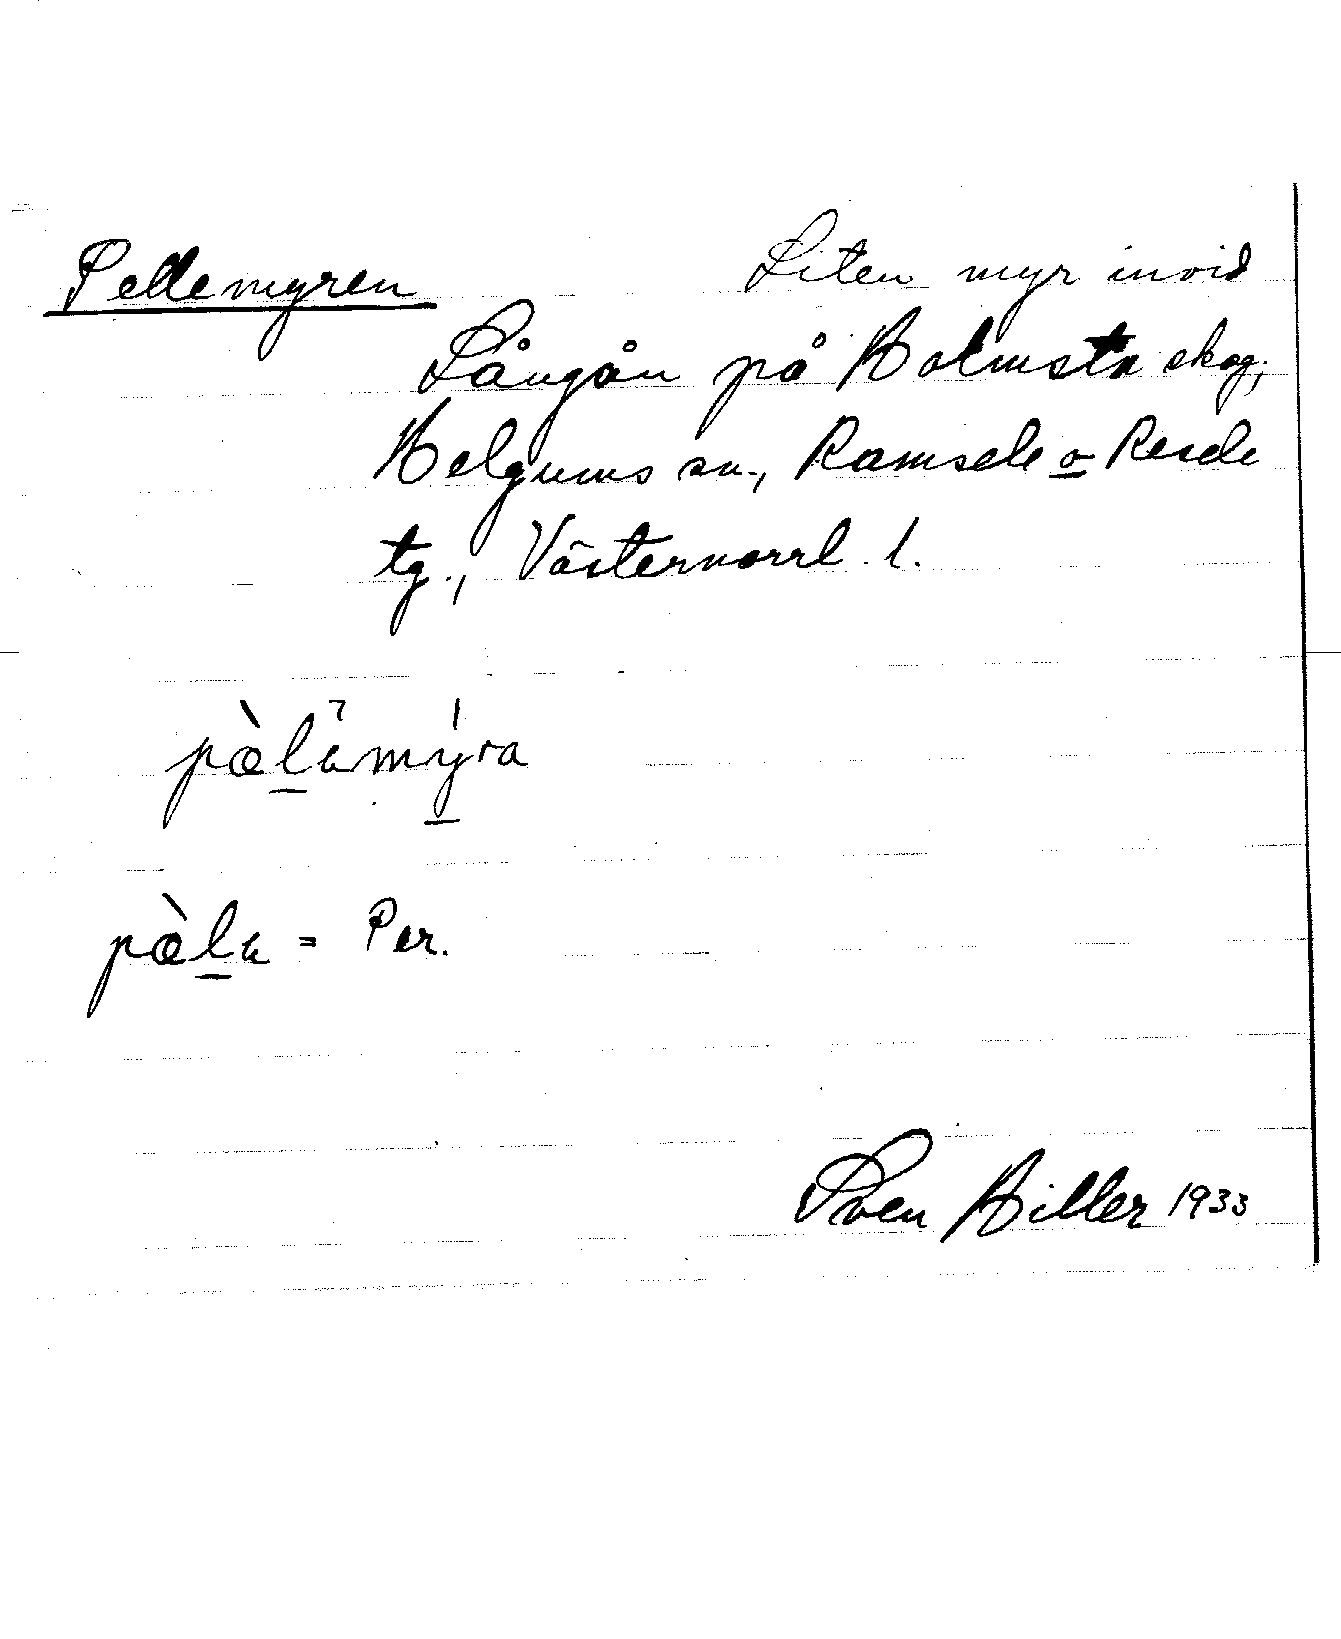 Pellemyren Liten myr invid
Långån på Holmsta skog,
Helgums sn., Ramsele o Resele
tg., Västernorrl. l.
pæ̀lamýra
pæ̀la = Per.
Sven Hiller 1933